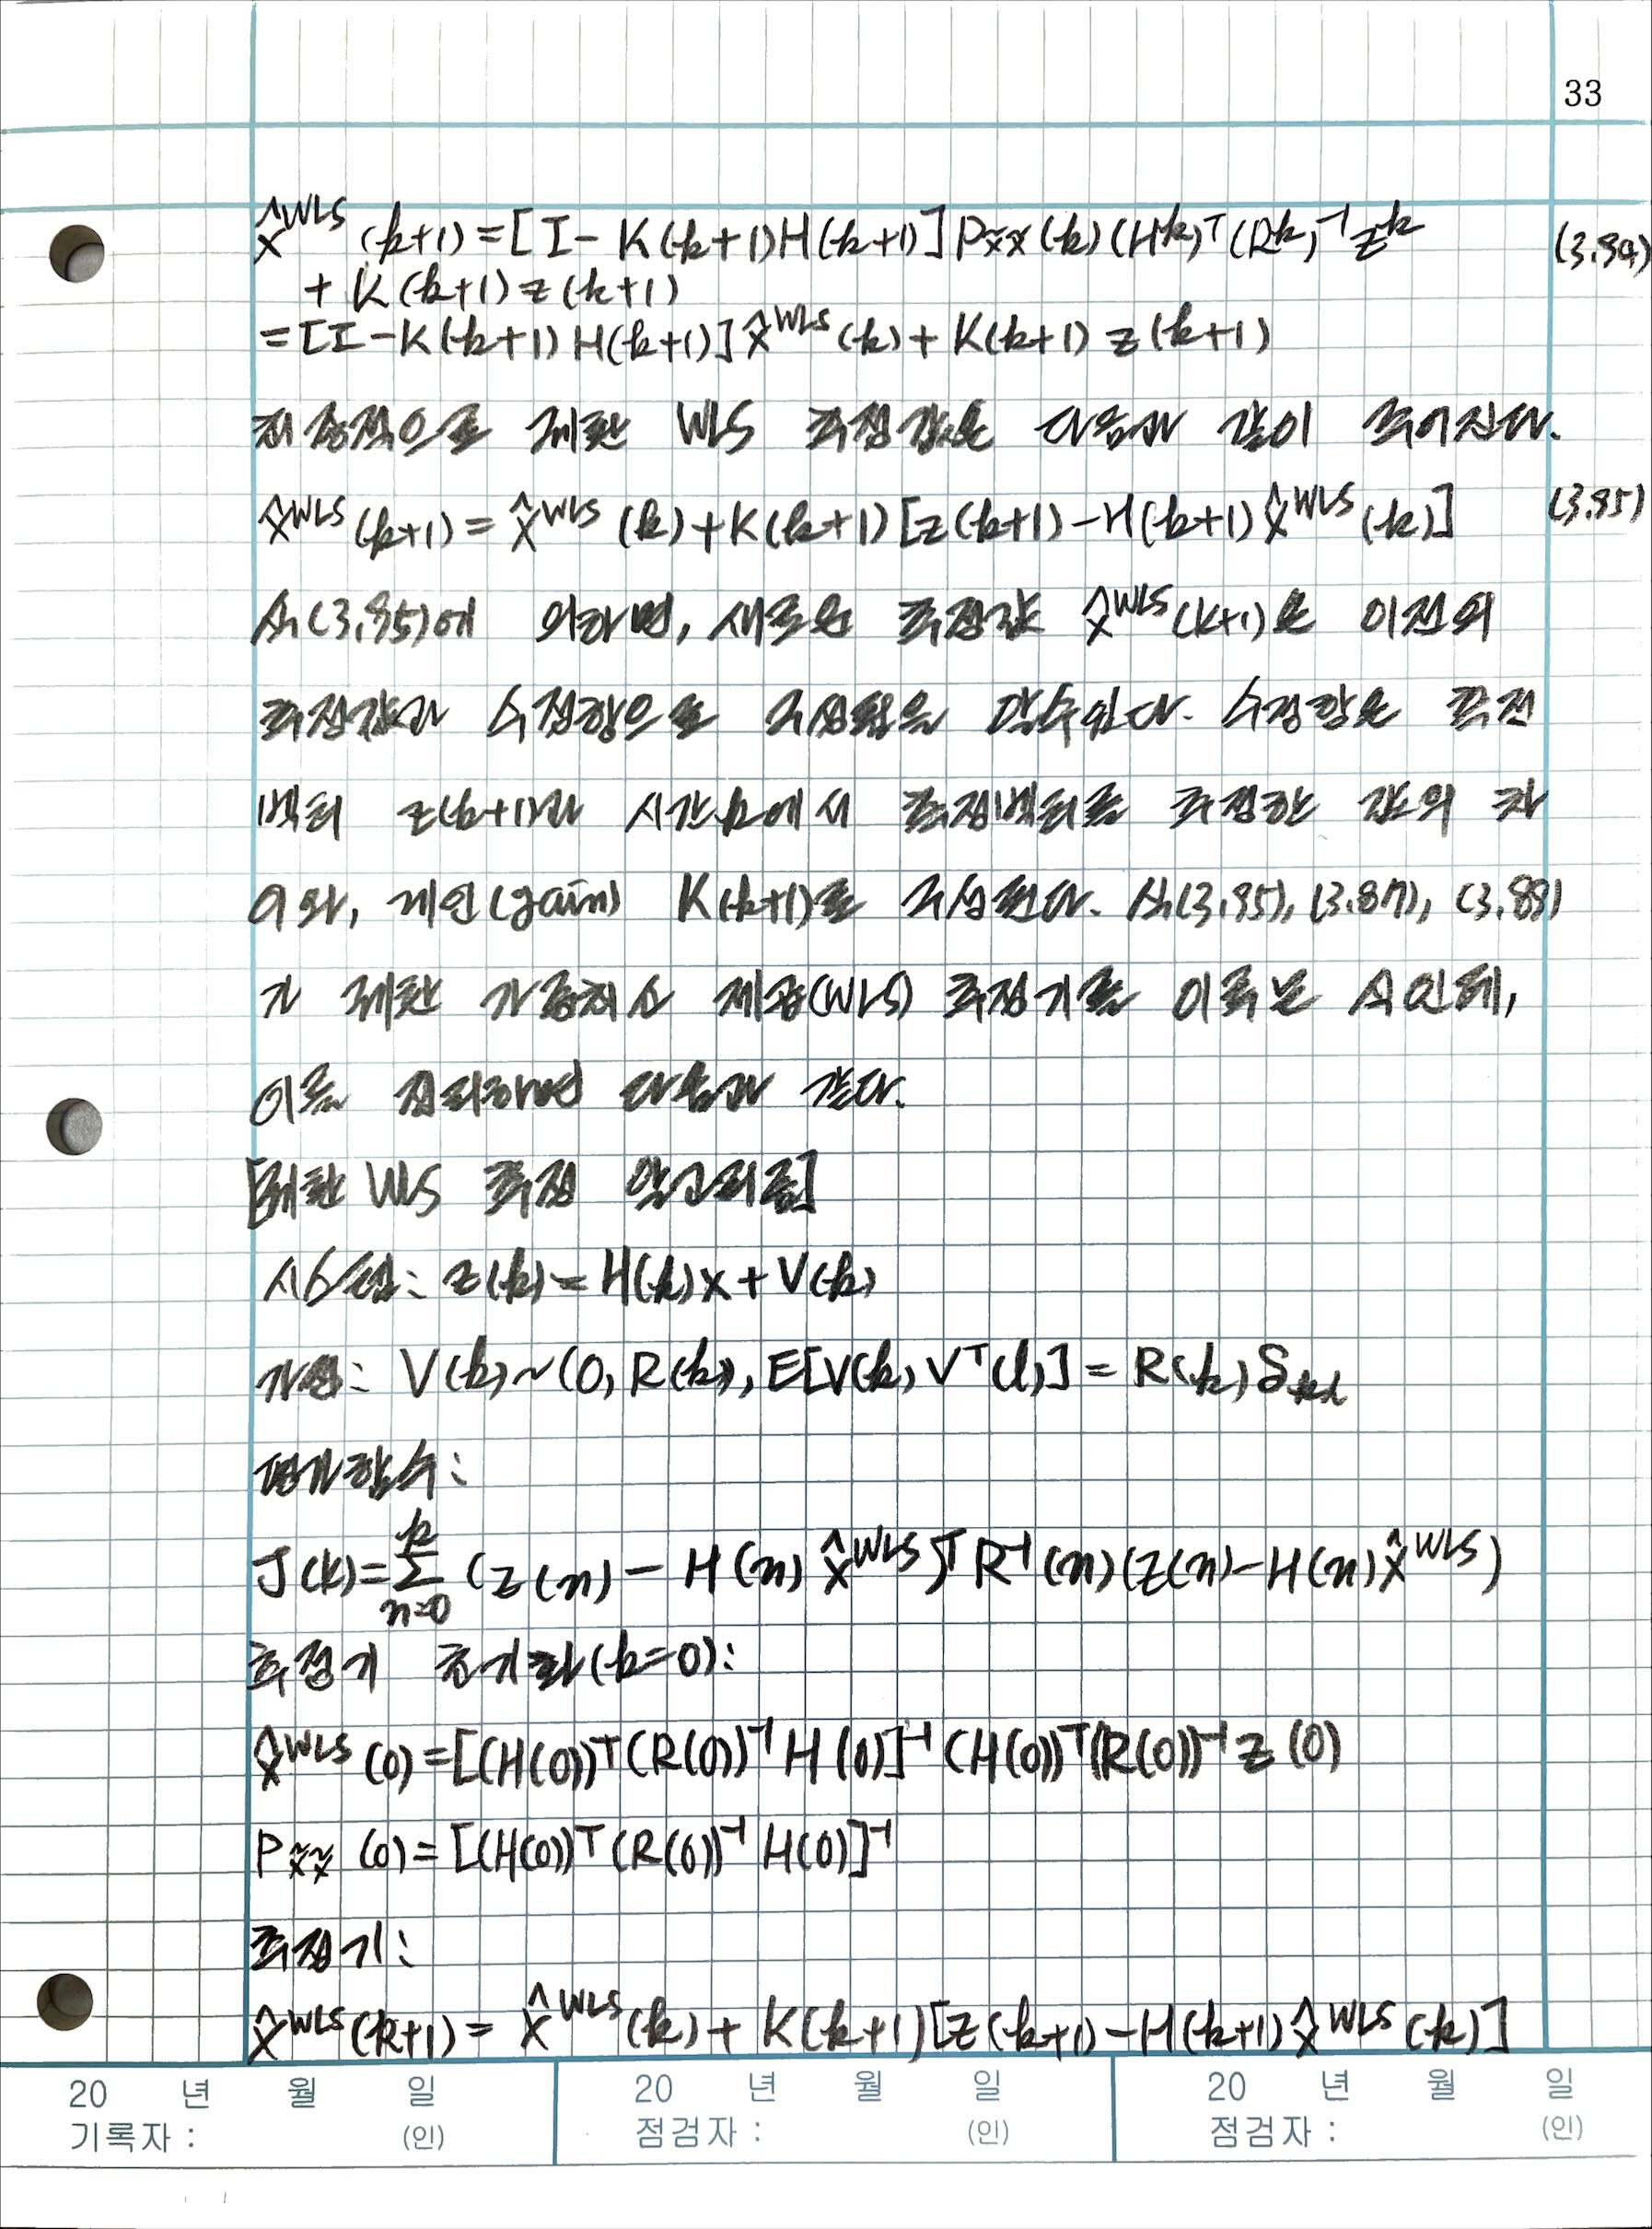 33
x̂^WLS (k+1) = [I - K(k+1)H(k+1)] P_x̃x̃ (k) (H^k)^T (R^k)^-1 z^k (3.94)
+ K(k+1) z(k+1)
= [I - K(k+1) H(k+1)] x̂^WLS (k) + K(k+1) z(k+1)
최종적으로 재환 WLS 추정값은 다음과 같이 주어진다.
x̂^WLS (k+1) = x̂^WLS (k) + K(k+1) [z(k+1) - H(k+1) x̂^WLS (k)] (3.95)
식(3.95)에 의하면, 새로운 추정값 x̂^WLS (k+1)은 이전의
추정값과 수정항으로 구성됨을 알 수 있다. 수정항은 측정
벡터 z(k+1)과 시간k에서 측정벡터를 추정한 값의 차
이와, 게인(gain) K(k+1)로 구성된다. 식(3.95), (3.87), (3.89)
가 재환 가중최소 제곱(WLS) 추정기를 이루는 식인데,
이를 정리하면 다음과 같다.
[재환 WLS 추정 알고리즘]
시스템: z(k) = H(k)x + V(k)
가정: V(k) ~ (0, R(k)), E[V(k) V^T(l)] = R(k) δ_kl
평가함수:
J(k) = Σ_{n=0}^{k} (z(n) - H(n) x̂^WLS)^T R^-1 (n) (z(n) - H(n) x̂^WLS)
추정기 초기화(k=0):
x̂^WLS (0) = [(H(0))^T (R(0))^-1 H(0)]^-1 (H(0))^T (R(0))^-1 z(0)
P_x̃x̃ (0) = [(H(0))^T (R(0))^-1 H(0)]^-1
추정기:
x̂^WLS (k+1) = x̂^WLS (k) + K(k+1) [z(k+1) - H(k+1) x̂^WLS (k)]
20 년 월 일 20 년 월 일 20 년 월 일
기록자 : (인) 점검자 : (인) 점검자 : (인)